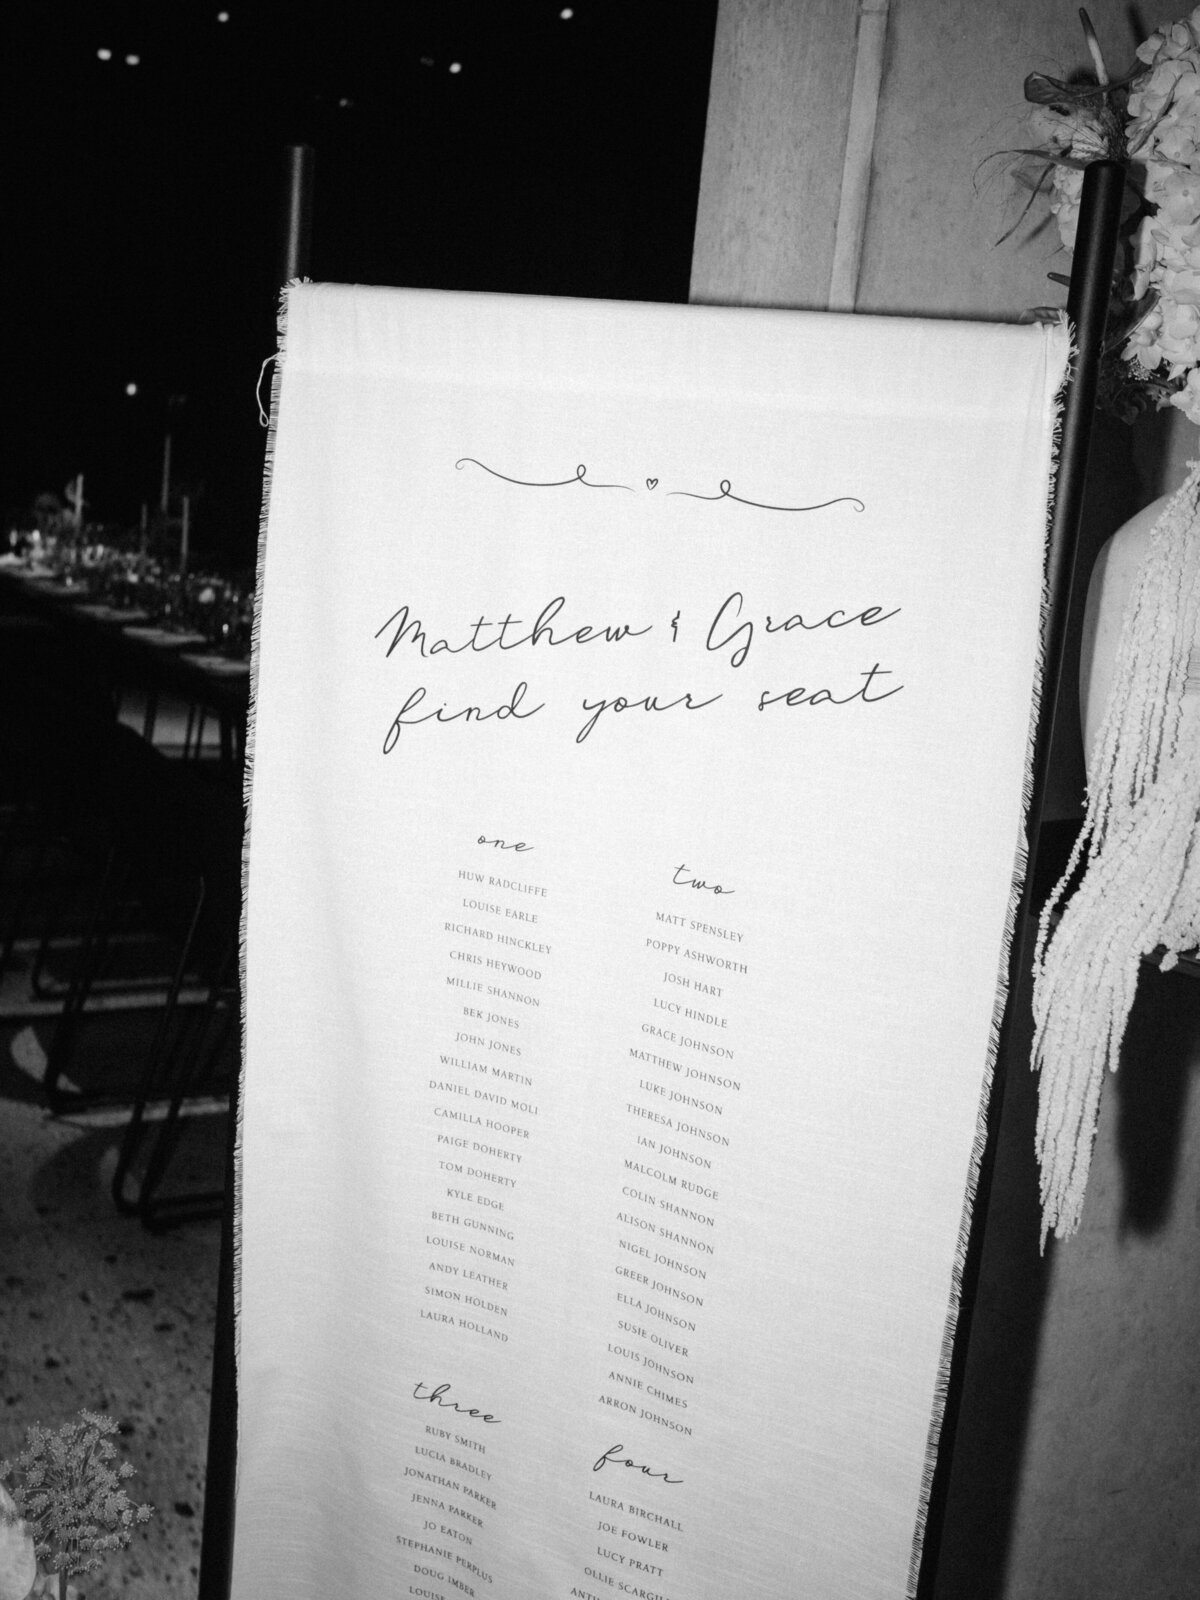 Matthew & Grace
find your seat
one
HUW RADCLIFFE
LOUISE EARLE
RICHARD HINCKLEY
CHRIS HEYWOOD
MILLIE SHANNON
BEK JONES
JOHN JONES
WILLIAM MARTIN
DANIEL DAVID MOLI
CAMILLA HOOPER
PAIGE DOHERTY
TOM DOHERTY
KYLE EDGE
BETH GUNNING
LOUISE NORMAN
ANDY LEATHER
SIMON HOLDEN
LAURA HOLLAND
two
MATT SPENSLEY
POPPY ASHWORTH
JOSH HART
LUCY HINDLE
GRACE JOHNSON
MATTHEW JOHNSON
LUKE JOHNSON
THERESA JOHNSON
IAN JOHNSON
MALCOLM RUDGE
COLIN SHANNON
ALISON SHANNON
NIGEL JOHNSON
GREER JOHNSON
ELLA JOHNSON
SUSIE OLIVER
LOUIS JOHNSON
ANNIE CHIMES
ARRON JOHNSON
three
RUBY SMITH
LUCIA BRADLEY
JONATHAN PARKER
JENNA PARKER
JO EATON
STEPHANIE PERPLUS
DOUG IMBER
LOUISE
four
LAURA BIRCHALL
JOE FOWLER
LUCY PRATT
OLLIE